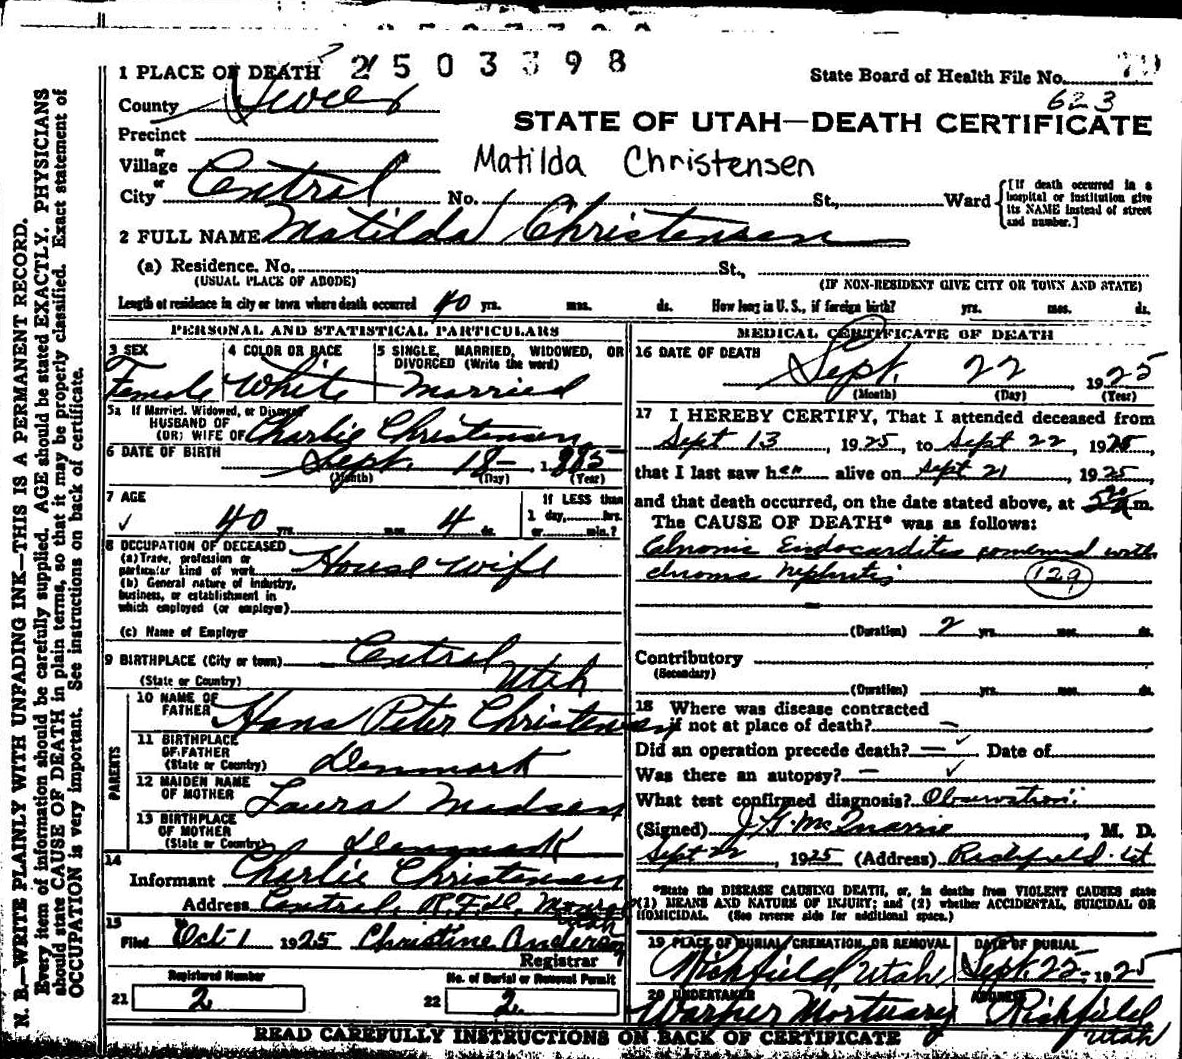 2503398
1 PLACE OF DEATH
State Board of Health File No.
County Sevier
623
STATE OF UTAH—DEATH CERTIFICATE
Precinct
or
Village
Matilda Christensen
or
City Central No. St., Ward
[If death occurred in a hospital or institution give its NAME instead of street and number.]
2 FULL NAME Matilda Christensen
(a) Residence. No. St.,
(USUAL PLACE OF ABODE) (IF NON-RESIDENT GIVE CITY OR TOWN AND STATE)
Length of residence in city or town where death occurred 40 yrs. mos. ds. How long in U.S., if foreign birth? yrs. mos. ds.
PERSONAL AND STATISTICAL PARTICULARS
3 SEX
Female
4 COLOR OR RACE
White
5 SINGLE, MARRIED, WIDOWED, OR
DIVORCED (Write the word)
Married
5a If Married, Widowed, or Divorced
HUSBAND OF
(OR) WIFE OF Charlie Christensen
6 DATE OF BIRTH
Sept. 18 1885
(Month) (Day) (Year)
7 AGE
40 yrs. mos. 4 ds.
If LESS than
1 day, hrs.
or min.?
8 OCCUPATION OF DECEASED
(a) Trade, profession or
particular kind of work House wife
(b) General nature of industry,
business, or establishment in
which employed (or employer)
(c) Name of Employer
9 BIRTHPLACE (City or town) Central
(State or Country) Utah
PARENTS
10 NAME OF
FATHER Hans Peter Christensen
11 BIRTHPLACE
OF FATHER
(State or Country) Denmark
12 MAIDEN NAME
OF MOTHER Laura Madsen
13 BIRTHPLACE
OF MOTHER
(State or Country) Denmark
14
Informant Charlie Christensen
Address Central, R.F.D. Monroe
Utah
15
Filed Oct 1 1925 Christine Anderson
Registrar
Registered Number
21 2
No. of Burial or Removal Permit
22 2
MEDICAL CERTIFICATE OF DEATH
16 DATE OF DEATH
Sept. 22 1925
(Month) (Day) (Year)
17 I HEREBY CERTIFY, That I attended deceased from
Sept 13, 1925, to Sept 22, 1925
that I last saw her alive on Sept 21, 1925,
and that death occurred, on the date stated above, at m.
The CAUSE OF DEATH* was as follows:
Chronic Endocarditis combined with
chronic Nephritis
129
(Duration) 2 yrs. mos. ds.
Contributory
(Secondary)
(Duration) yrs. mos. ds.
18 Where was disease contracted
if not at place of death? —
Did an operation precede death? — Date of
Was there an autopsy? —
What test confirmed diagnosis? Observation
(Signed) J. G. McQuarrie, M. D.
Sept 22, 1925 (Address) Richfield Ut
*State the DISEASE CAUSING DEATH, or, in deaths from VIOLENT CAUSES state
(1) MEANS AND NATURE OF INJURY; and (2) whether ACCIDENTAL, SUICIDAL OR
HOMICIDAL. (See reverse side for additional space.)
19 PLACE OF BURIAL, CREMATION, OR REMOVAL
Richfield, Utah
DATE OF BURIAL
Sept. 25 1925
20 UNDERTAKER
Mortuary
ADDRESS
Richfield
Utah
READ CAREFULLY INSTRUCTIONS ON BACK OF CERTIFICATE
N. B.—WRITE PLAINLY WITH UNFADING INK—THIS IS A PERMANENT RECORD.
Every item of information should be carefully supplied. AGE should be stated EXACTLY. PHYSICIANS
should state CAUSE OF DEATH in plain terms, so that it may be properly classified. Exact statement of
OCCUPATION is very important. See instructions on back of certificate.